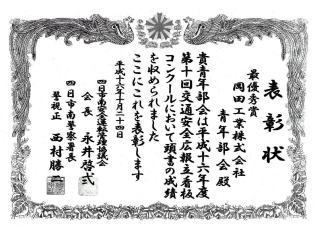 表彰状
最優秀賞
岡田工業株式会社
青年部会殿
貴青年部会は平成十六年度
第十回交通安全広報立看板
コンクールにおいて頭書の成績
を収められました
ここにこれを表彰します
平成十六年十月二十四日
四日市南安全運転管理協議会
会長 永井啓式
四日市南警察署長
警視正 西村勝